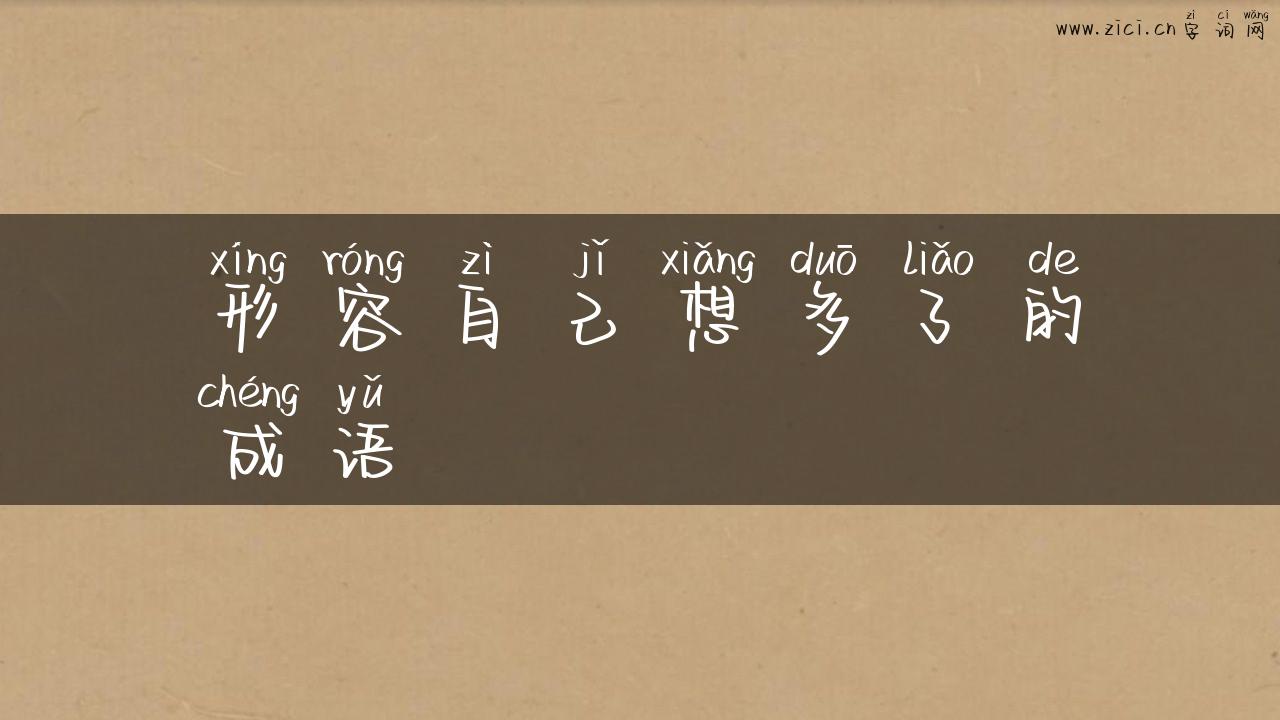 zì cí wǎng
www.zici.cn 字 词 网
xíng róng zì jǐ xiǎng duō liǎo de
形 容 自 己 想 多 了 的
chéng yǔ
成 语